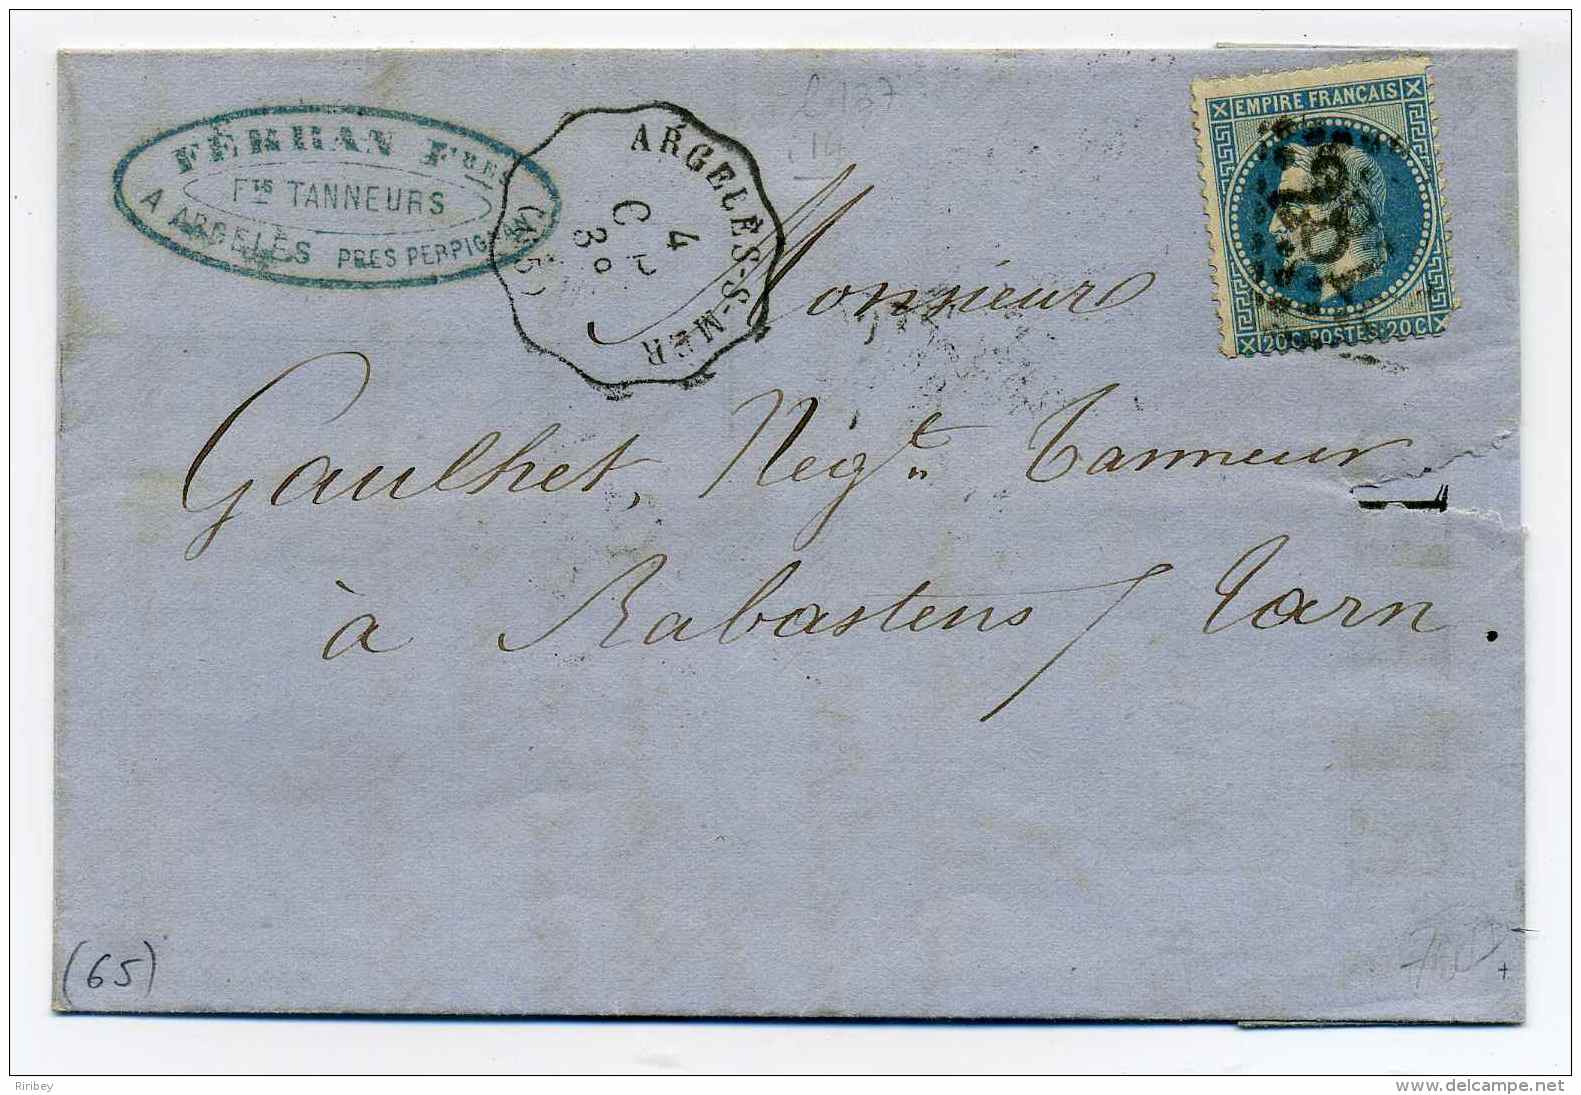 FERHAN Fres
Fts TANNEURS
A ARGELÈS PRES PERPIGNAN
ARGELÈS-S-MER
4
EMPIRE FRANÇAIS
20 C POSTES 20 C
Monsieur
Gaulhet, Negt Tanneur
à Rabastens / Tarn.
(65)
Riribey